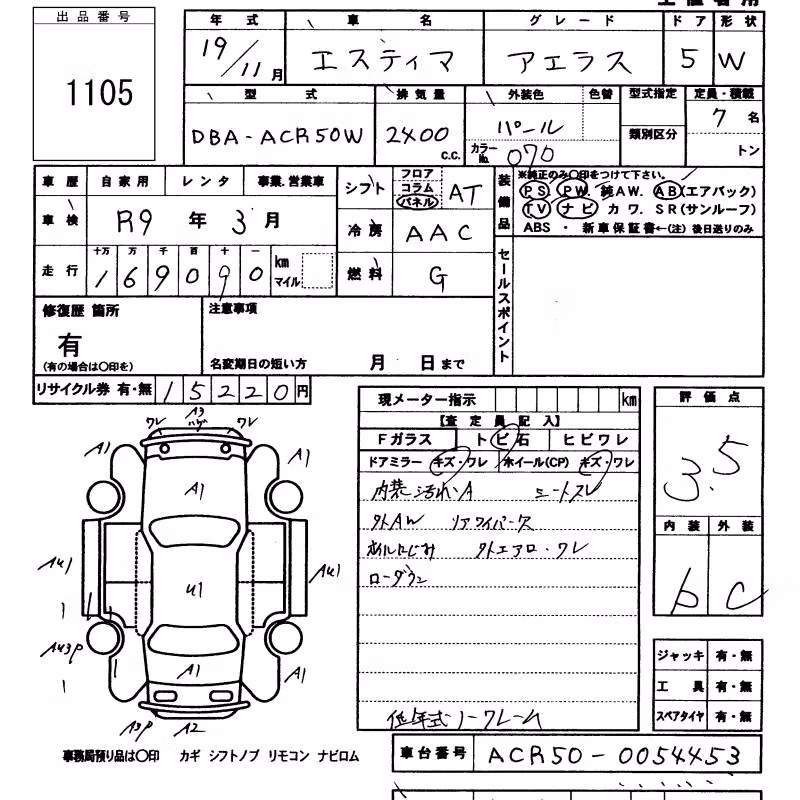 出品番号
1105
年式 車名 グレード ドア 形状
19/11月 エスティマ アエラス 5 W
型式 排気量 外装色 色替 型式指定 定員・積載
DBA-ACR50W 2400 c.c. パール 類別区分 7名
カラーNo. 070 トン
車歴 自家用 レンタ 事業.営業車
車検 R9年3月
走行 十万 万 千 百 十 一
169090 km マイル
シフト フロア コラム パネル AT
冷房 AAC
燃料 G
装備品 ※純正のみ○印をつけて下さい。
PS. PW. 純AW. AB(エアバック)
TV ナビ カワ. SR(サンルーフ)
ABS ・ 新車保証書←(注) 後日送りのみ
セールスポイント
修復歴 箇所 注意事項
有
(有の場合は○印を) 名変期日の短い方 月 日まで
リサイクル券 有・無 15220円
現メーター指示 km
【査定員記入】
Fガラス トビ石 ヒビワレ
ドアミラー キズ・ワレ ホイール(CP) キズ・ワレ
内装汚れ・A シートスレ
外AW リアワイパー欠
オイルにじみ 外エアロ・ワレ
ローダウン
低年式ノークレーム
評価点
3.5
内装 外装
b C
ジャッキ 有・無
工具 有・無
スペアタイヤ 有・無
A3
ワレ ハゲ ワレ
A1 A1
A1
AU1 U1 AU1
AU3P
A1 A1
A3P A2
事務局預り品は○印 カギ シフトノブ リモコン ナビロム
車台番号 ACR50-0054453